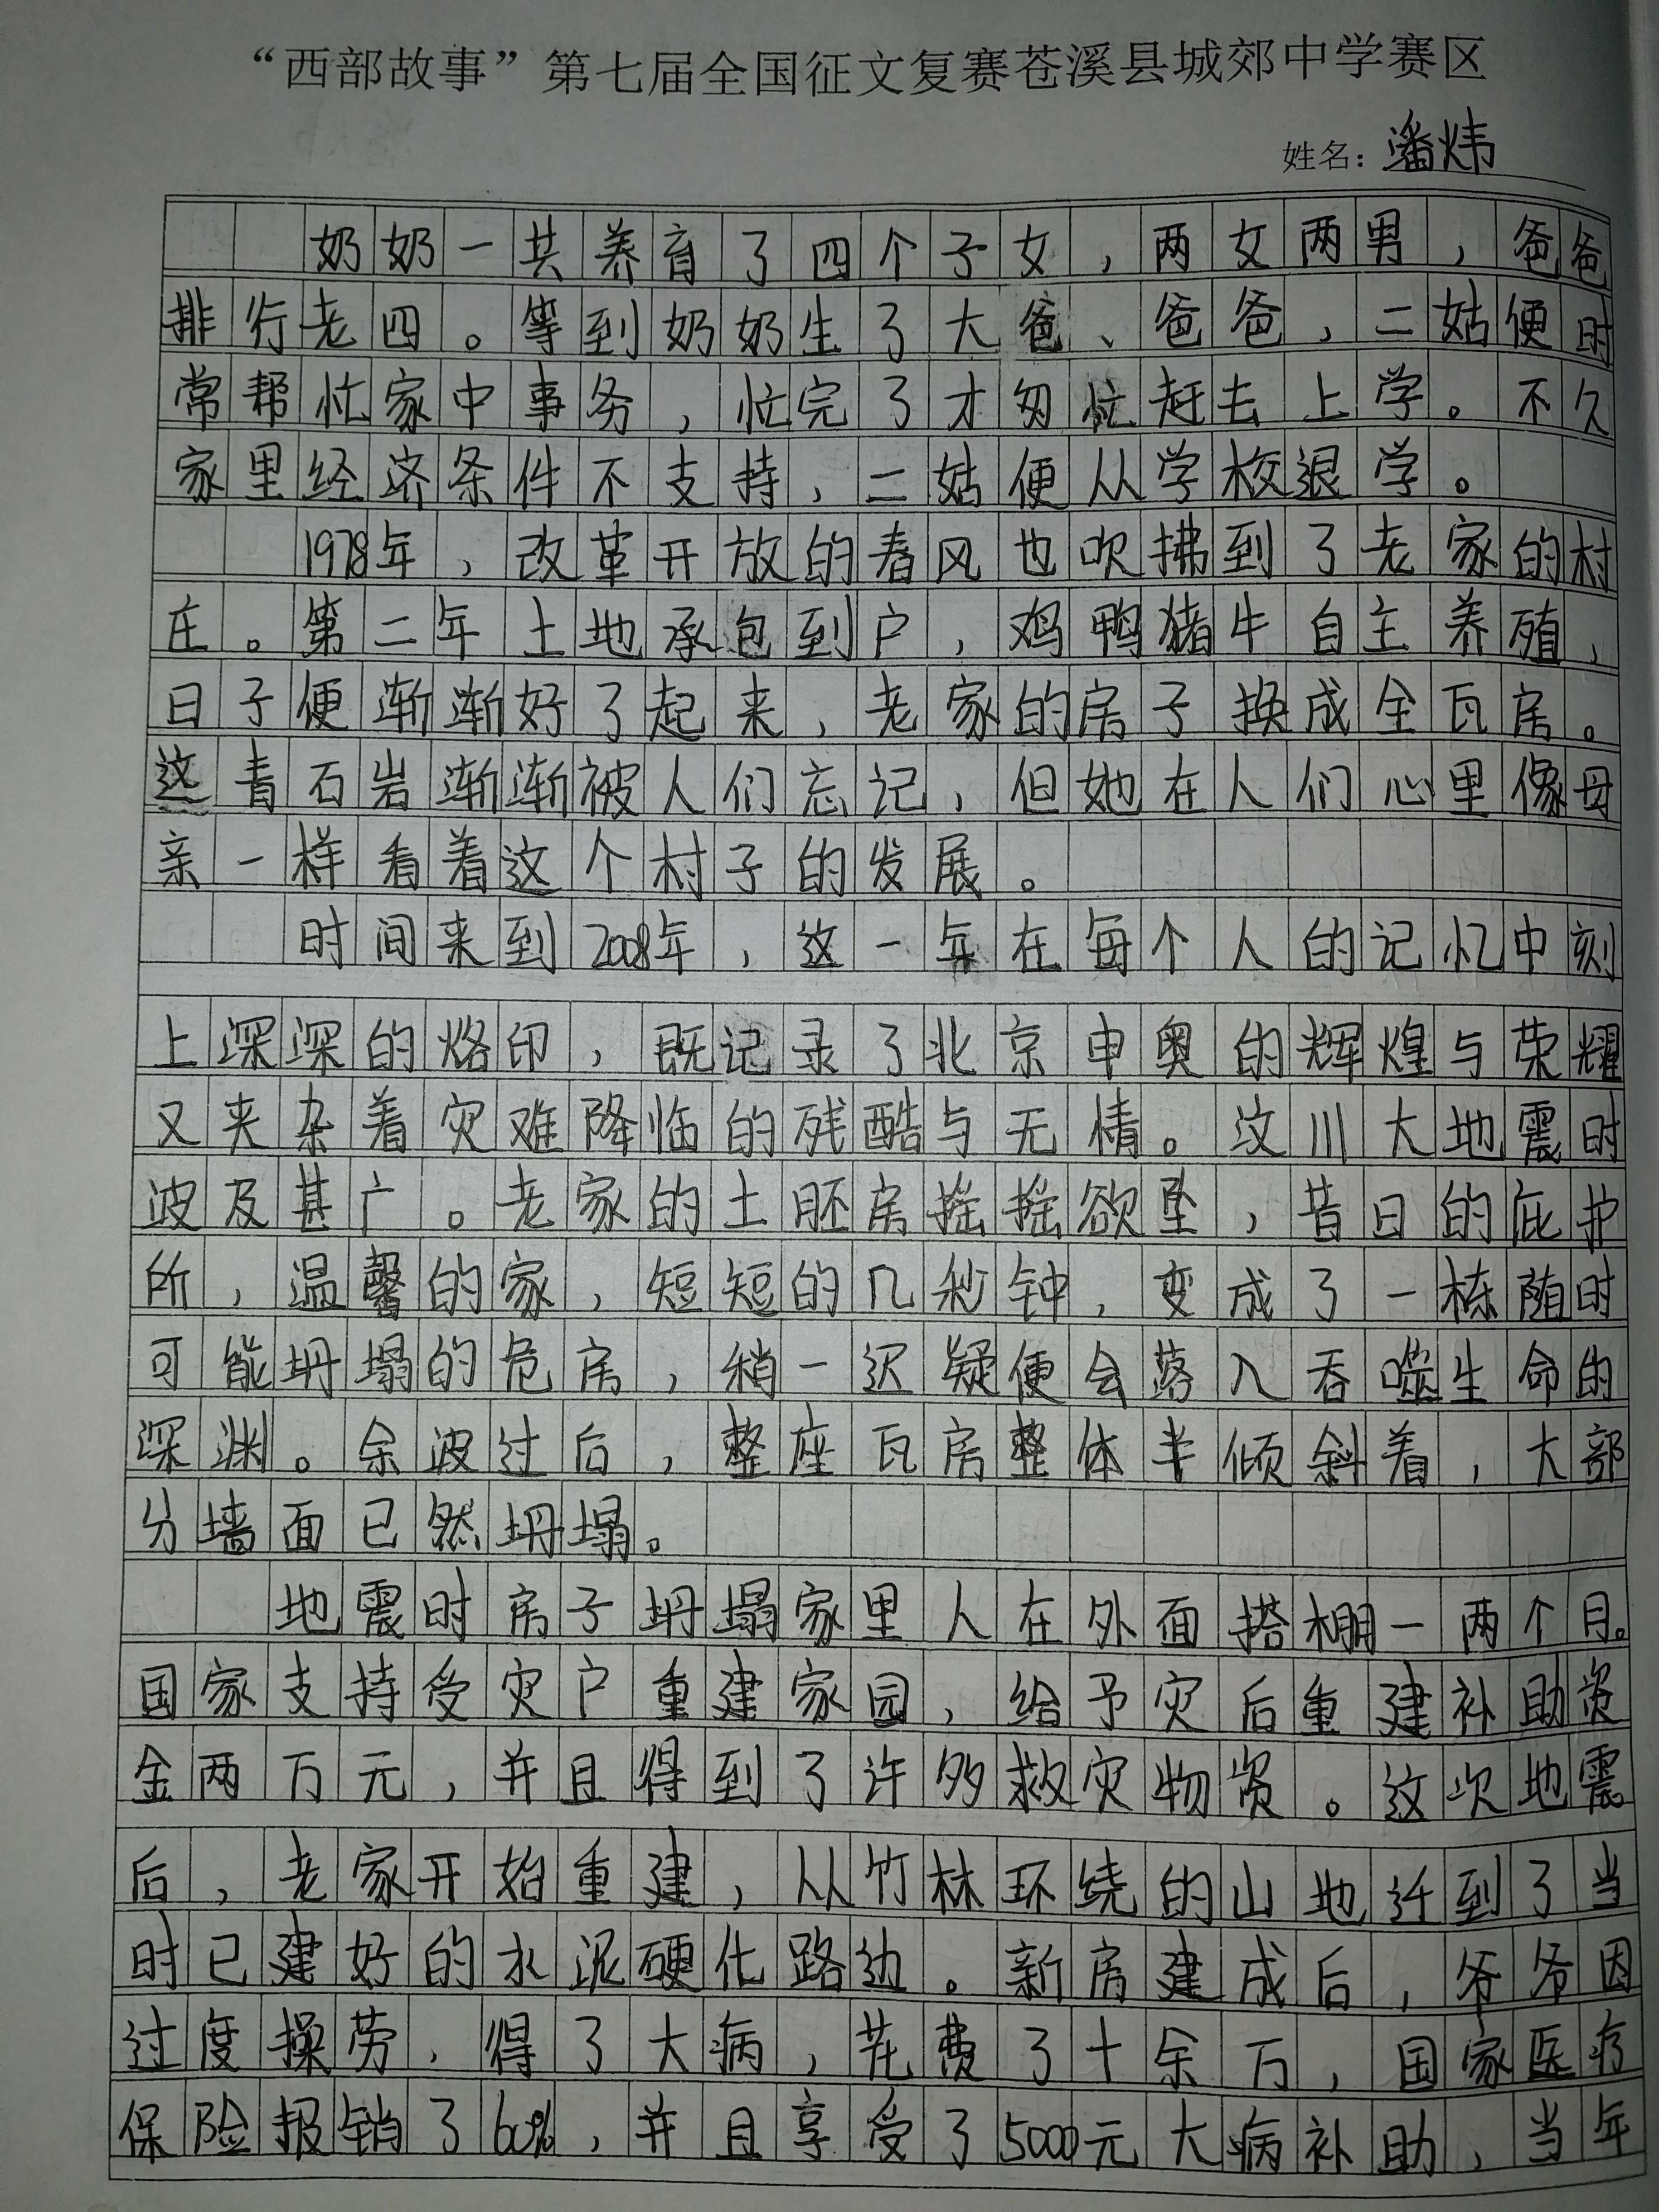 “西部故事”第七届全国征文复赛苍溪县城郊中学赛区
姓名：潘炜
奶奶一共养育了四个子女，两女两男，爸爸
排行老四。等到奶奶生了大爸、爸爸，二姑便时
常帮忙家中事务，忙完了才匆忙赶去上学。不久
家里经济条件不支持，二姑便从学校退学。
1978年，改革开放的春风也吹拂到了老家的村
庄。第二年土地承包到户，鸡鸭猪牛自主养殖，
日子便渐渐好了起来，老家的房子换成全瓦房。
这青石岩渐渐被人们忘记，但她在人们心里像母
亲一样看着这个村子的发展。
时间来到2008年，这一年在每个人的记忆中刻
上深深的烙印，既记录了北京申奥的辉煌与荣耀
又夹杂着灾难降临的残酷与无情。汶川大地震时
波及甚广。老家的土胚房摇摇欲坠，昔日的庇护
所，温馨的家，短短的几秒钟，变成了一栋随时
可能坍塌的危房，稍一迟疑便会落入吞噬生命的
深渊。余波过后，整座瓦房整体半倾斜着，大部
分墙面已然坍塌。
地震时房子坍塌家里人在外面搭棚一两个月。
国家支持受灾户重建家园，给予灾后重建补助资
金两万元，并且得到了许多救灾物资。这次地震
后，老家开始重建，从竹林环绕的山地迁到了当
时已建好的水泥硬化路边。新房建成后，爷爷因
过度操劳，得了大病，花费了十余万，国家医疗
保险报销了60%，并且享受了5000元大病补助，当年